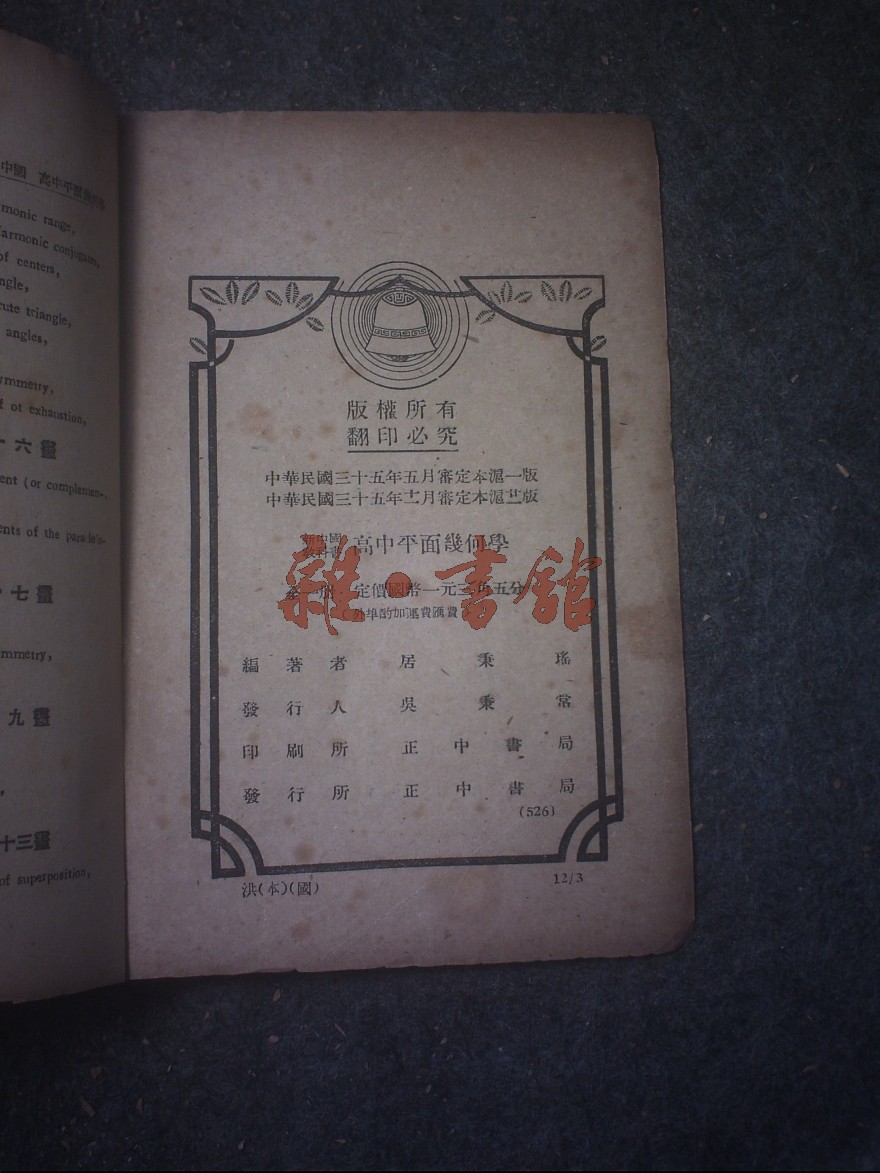 中國 高中平
monic range,
armonic conjugates,
of centers,
ngle,
cute triangle,
angles,
ymmetry,
f ot exhaustion,
十六畫
ent (or complemen-
ents of the para
七畫
mmetry,
九畫
十三畫
of superposition,
版權所有
翻印必究
中華民國三十五年五月審定本滬一版
中華民國三十五年十二月審定本滬廿一版
新中國教科書 高中平面幾何學
全一冊 定價國幣一元三角五分
(外埠酌加運費匯費)
雜·書館
編著者 居秉瑤
發行人 吳秉常
印刷所 正中書局
發行所 正中書局
(526)
洪(本)(國)
12/3